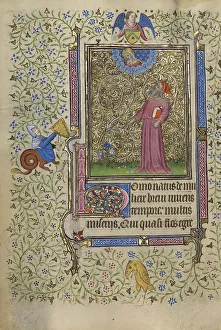 Homo natus de mu
liere breui uiuens
tempore multis
miserijs. Qui quasi flos egre